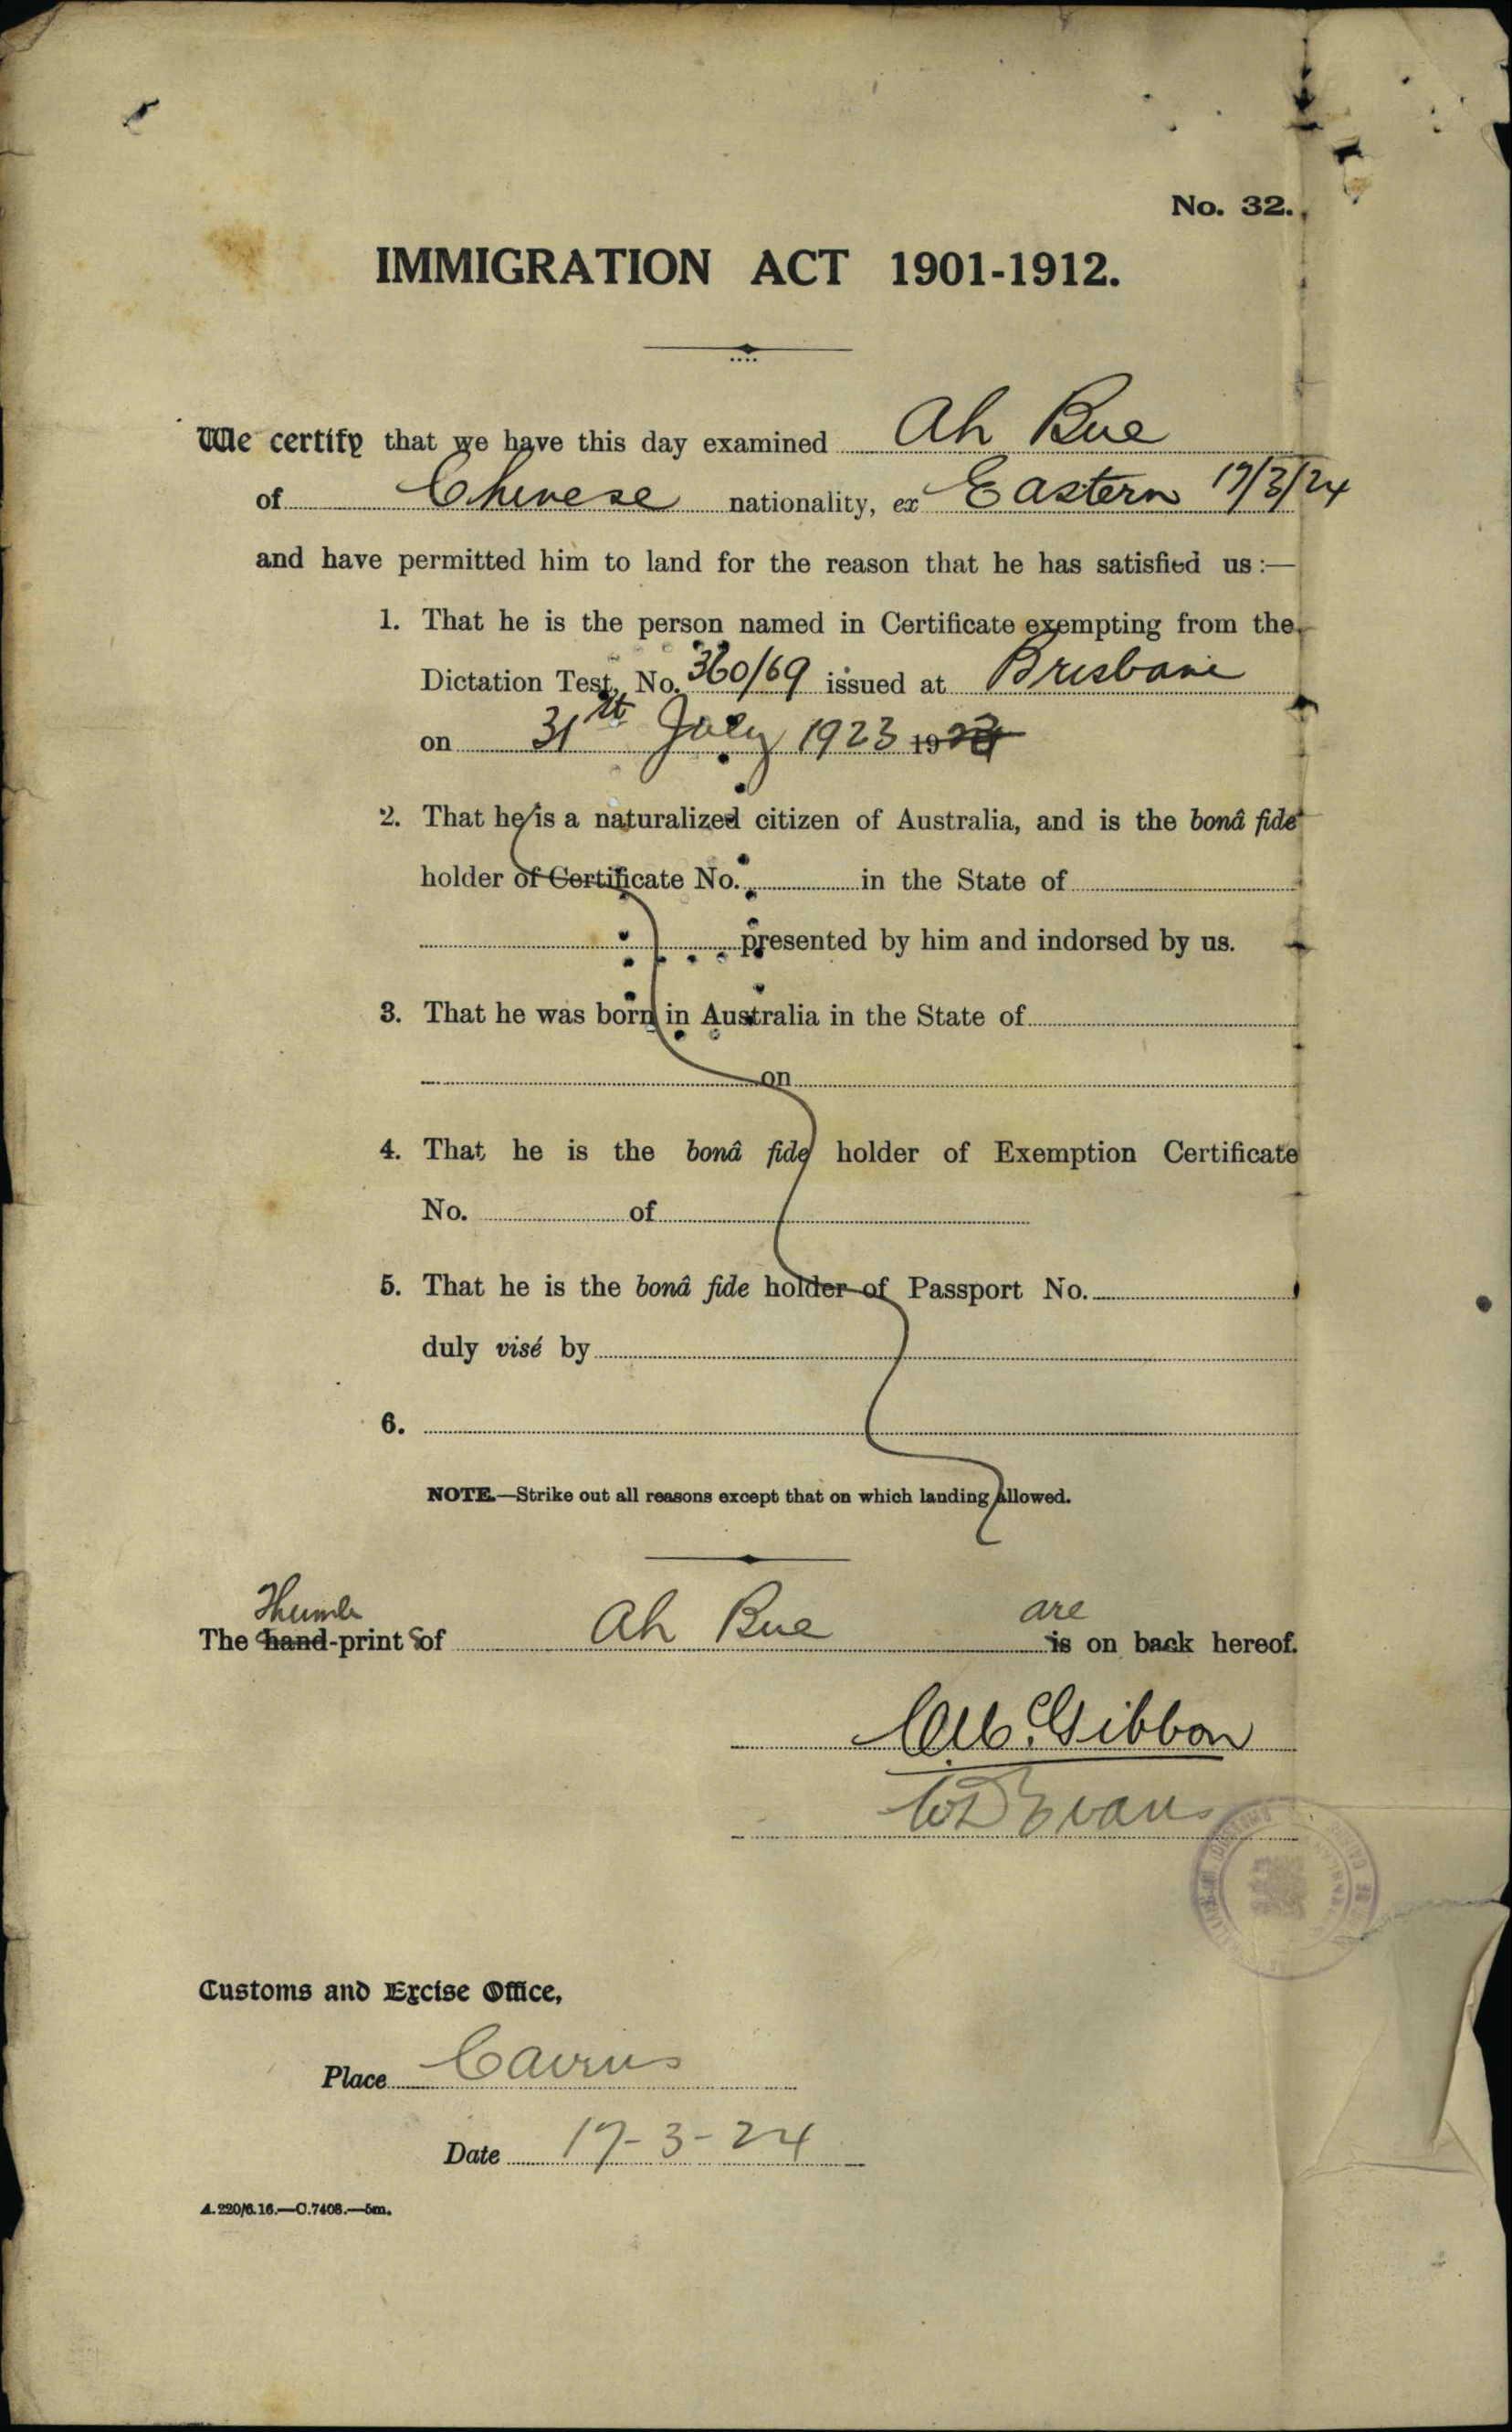 No. 32.
IMMIGRATION ACT 1901-1912.
We certify that we have this day examined Ah Bue
of Chinese nationality, ex Eastern 17/3/24
and have permitted him to land for the reason that he has satisfied us :—
1. That he is the person named in Certificate exempting from the
Dictation Test, No. 360/69 issued at Brisbane
on 31st July 1923 19
2. That he is a naturalized citizen of Australia, and is the bonâ fide
holder of Certificate No. in the State of
presented by him and indorsed by us.
3. That he was born in Australia in the State of
on
4. That he is the bonâ fide holder of Exemption Certificate
No. of
5. That he is the bonâ fide holder of Passport No.
duly visé by
6.
NOTE.—Strike out all reasons except that on which landing allowed.
Thumb are
The hand-prints of Ah Bue is on back hereof.
Gibbon
W D Evans
Customs and Excise Office,
Place Cairns
Date 17-3-24
A.220/6.16.—C.7408.—5m.